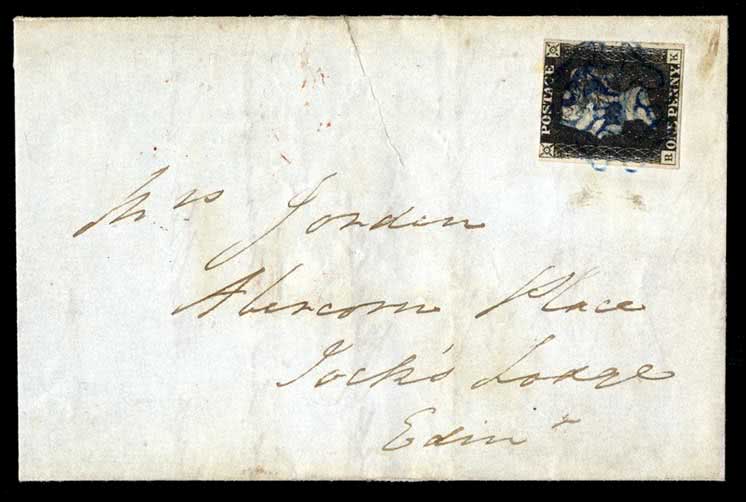 POSTAGE
ONE PENNY
B K
Mrs Jorden
Abercorn Place
Jock's Lodge
Edinr